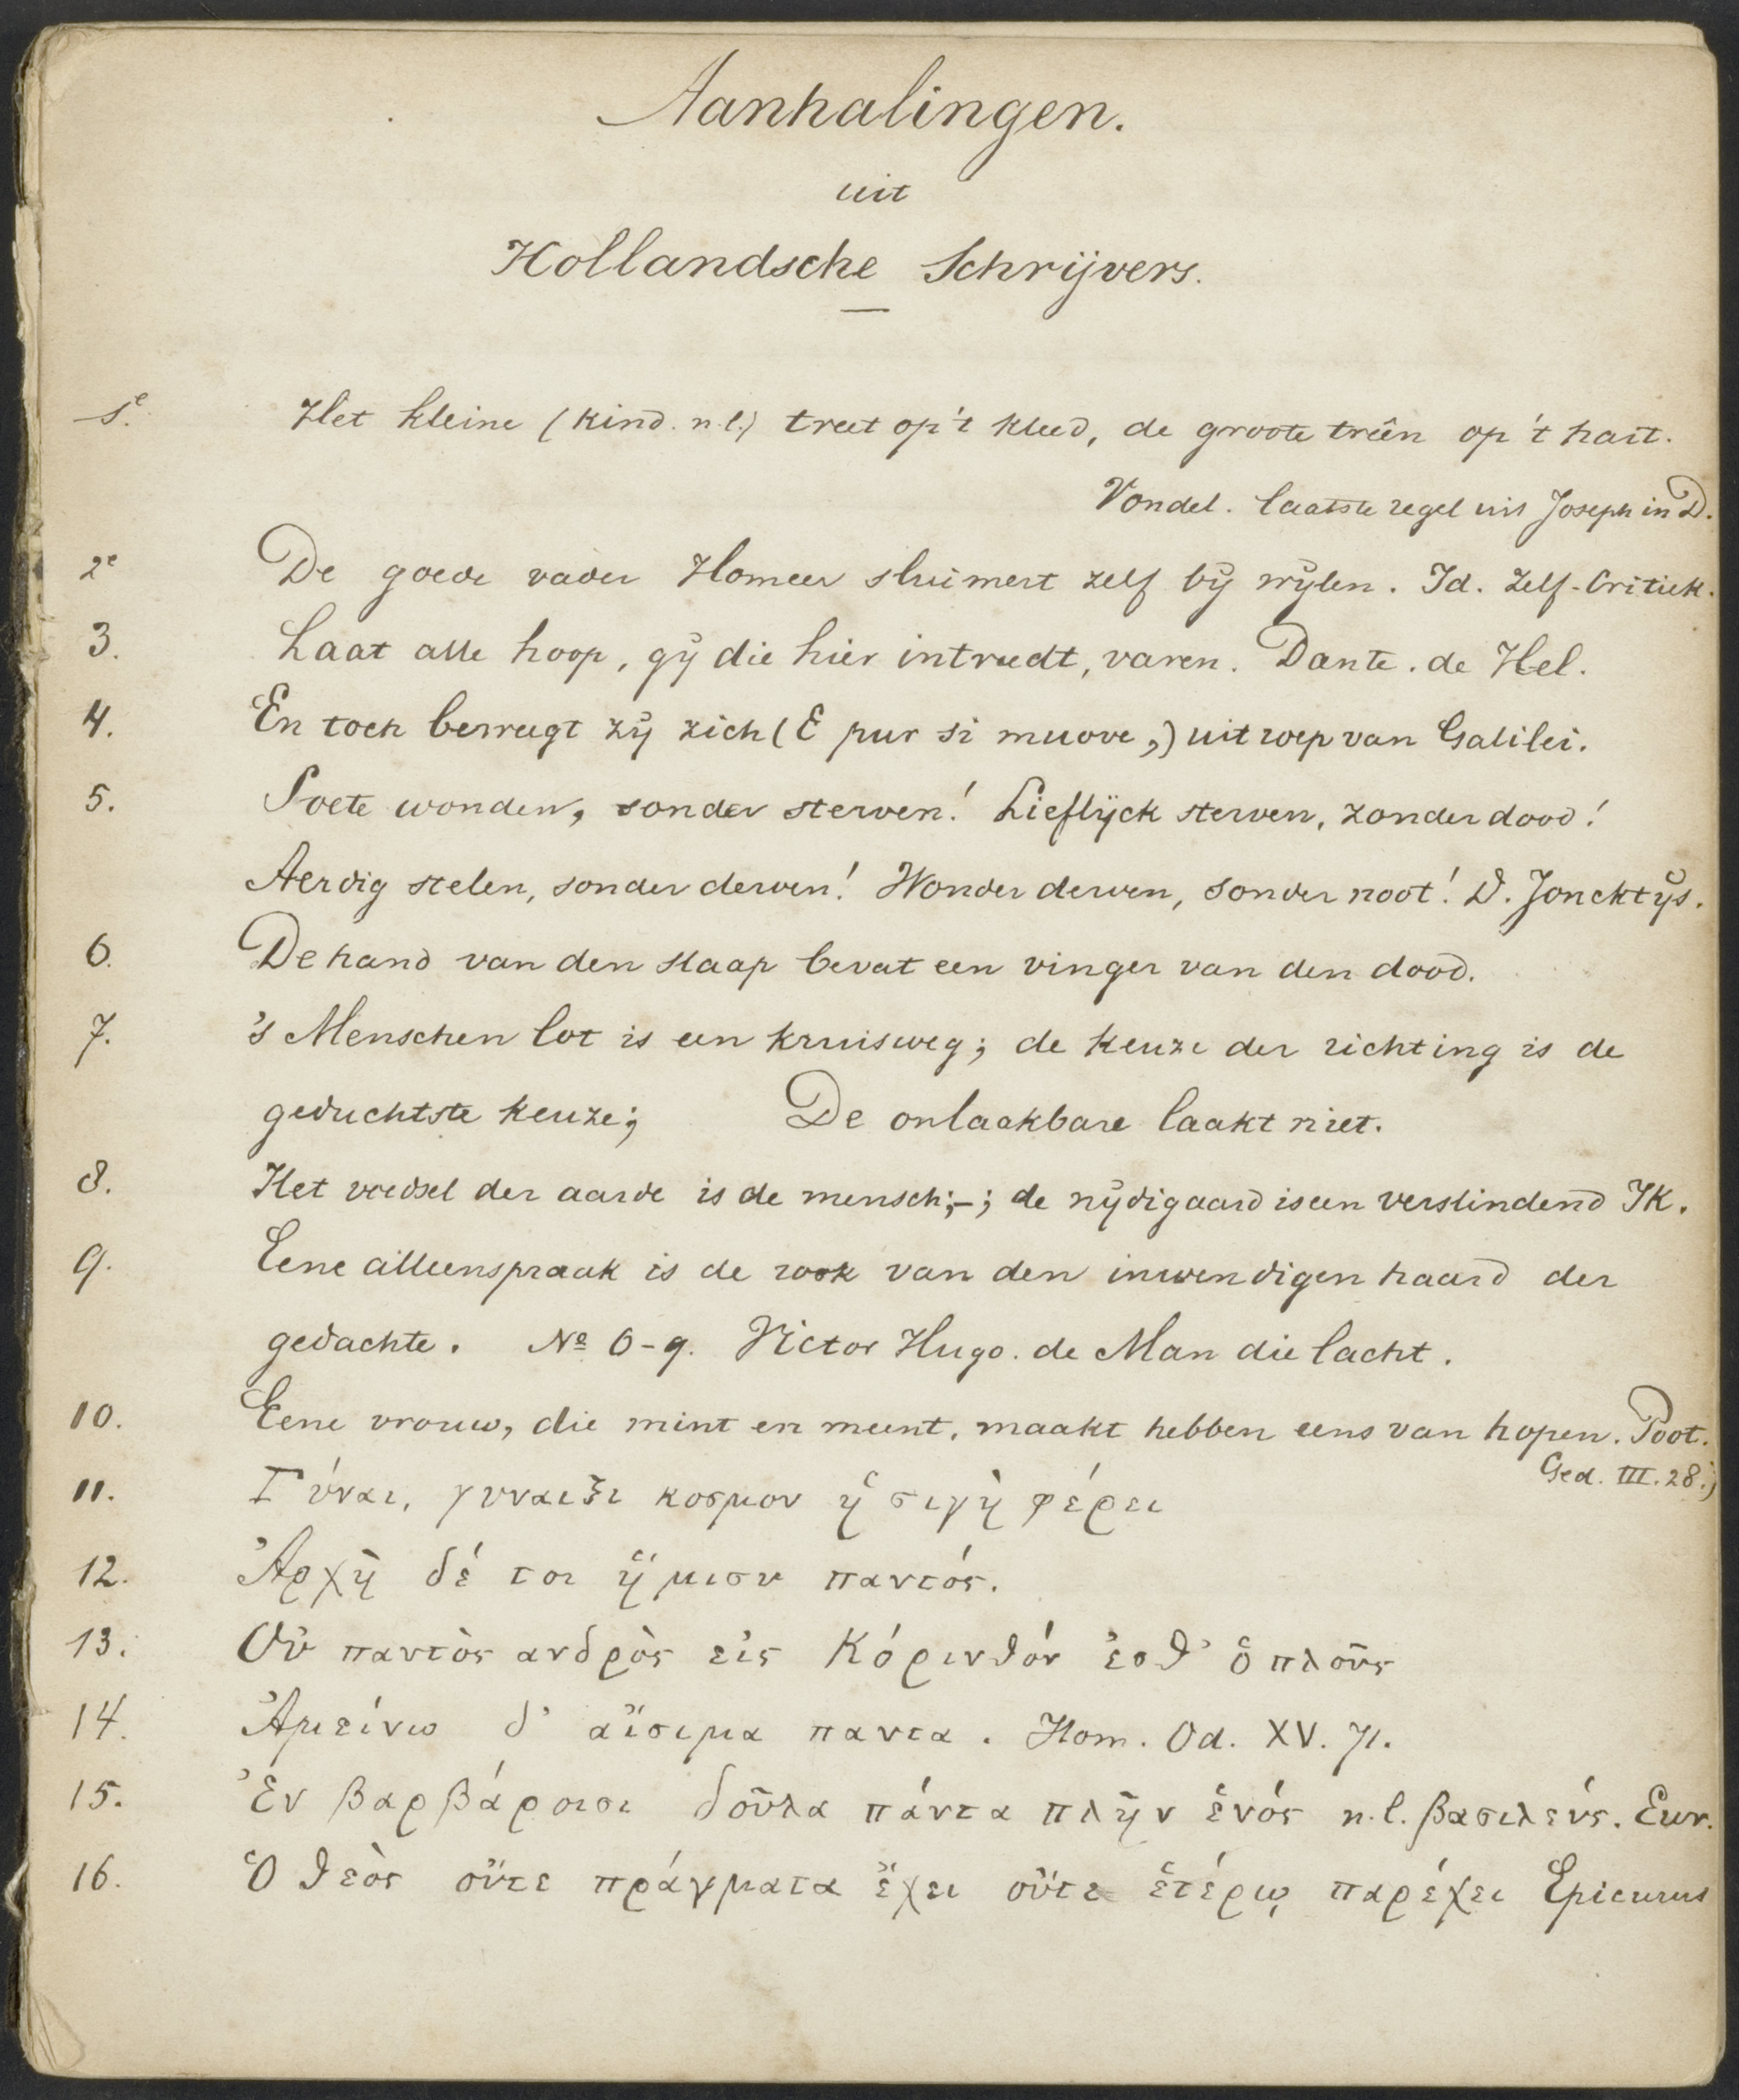 Aanhalingen.
uit
Hollandsche Schrijvers.
1e. Het kleine (kind. n.l.) treet op 't kleed, de groote treên op 't hart.
Vondel. laatste regel uit Joseph in D.
2e De goede vader Homeer sluimert zelf bij wijlen. Id. Zelf-Critiek.
3. Laat alle hoop, gij die hier intreedt, varen. Dante. de Hel.
4. En toch beweegt zij zich (E pur si muove,) uitroep van Galilei.
5. Soete wonden, sonder sterven! Lieflijck sterven, zonder dood!
Aerdig stelen, sonder derven! Wonder derven, sonder noot! D. Joncktijs.
6. De hand van den slaap bevat een vinger van den dood.
7. 's Menschen lot is een kruisweg; de keuze der richting is de
geduchtste keuze; De onlaakbare laakt niet.
8. Het voedsel der aarde is de mensch;-; de nijdigaard is een verslindend IK.
9. Eene alleenspraak is de rook van den inwendigen haard der
gedachte. No 6-9. Victor Hugo. de Man die lacht.
10. Eene vrouw, die mint en meent, maakt hebben eens van hopen. Poot.
Ged. III. 28.;
11. Γύναι, γυναιξι κοσμον ἡ σιγὴ φέρει
12. Ἀρχὴ δέ τοι ἥμισυ παντός.
13. Οὐ παντὸς ανδρὸς εἰς Κόρινθόν ἐσθ' ὁ πλοῦς
14. Ἀμείνω δ' αἴσιμα παντα. Hom. Od. XV. 71.
15. Ἐν βαρβάροισι δοῦλα πάντα πλὴν ἑνός n.l. βασιλεύς. Eur.
16. Ὁ θεὸς οὔτε πράγματα ἔχει οὔτε ἑτέρῳ παρέχει Epicurus